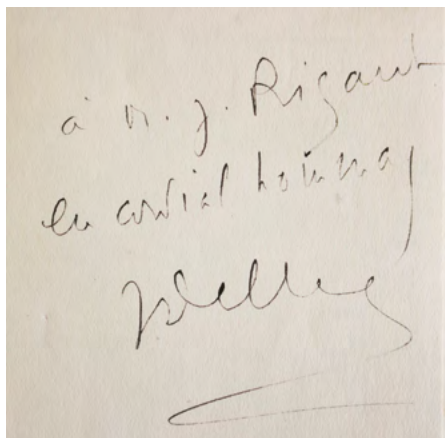 à M. J. Rigaut
en cordial hommage